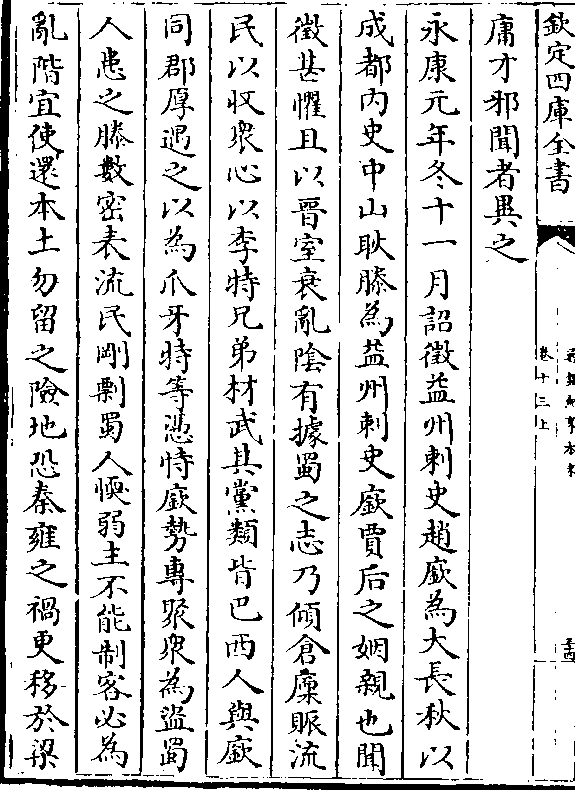 欽定四庫全書
卷十三上
庸才邪聞者異之
永康元年冬十一月詔徵益州刺史趙廞為大長秋以
成都内史中山耿滕為益州刺史廞賈后之姻親也聞
徵甚懼且以晉室衰亂隂有據蜀之志乃傾倉廩賑流
民以收衆心以李特兄弟材武其黨類皆巴西人與廞
同郡厚遇之以為爪牙特等憑恃廞勢專聚衆為盜蜀
人患之滕數密表流民剛剽蜀人愞弱主不能制客必為
亂階宜使還本土勿留之險地恐秦雍之禍更移於梁